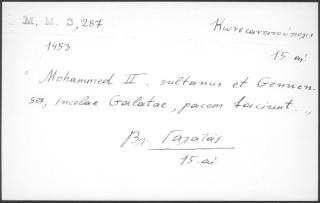 M. M. 3, 287 Κωνσταντινούπολη
1453 15. αἰ
"Mohammed II. sultanus et Genuen-
ses, incolae Galatae, pacem faciunt..,
Βλ. Γαλατάς
15. αἰ